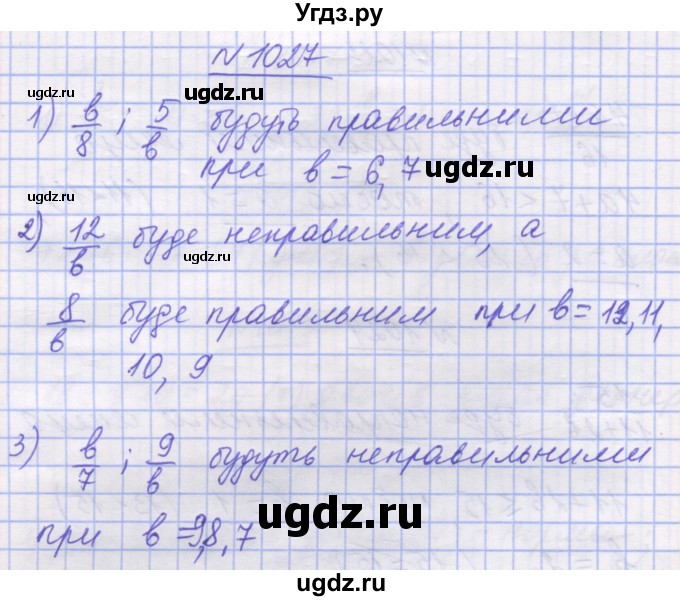 Угдз.ру
N 1027
ugdz.ru ugdz.ru
1) в/8 ; 5/в будуть правильними
при в = 6, 7 ugdz.ru
ugdz.ru
2) 12/в буде неправильним, а
ugdz.ru
8/в буде правильним при в = 12, 11,
10, 9
3) в/7 ; 9/в будуть неправильними
ugdz.ru
при в = 9, 8, 7
ugdz.ru